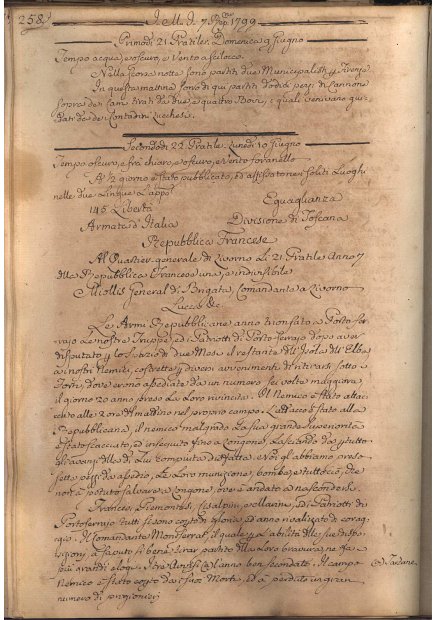 258.
I. M. I. 7 Rep. 1799
Primodi 21 Pratile. Domenica 9 Giugno
Tempo acqua, e oscuro, e Vento a scilocco.
Nella scorsa notte sono partiti due Municipalisti p Firenze
In questa mattina sono di qui partiti dodici pezzi di Cannone
sopra dei Carri tirati da due e quattro Bovi, i quali venivano gui-
dati da dei Contadini Lucchesi.
Secondodi 22 Pratile. Lunedi 10 Giugno
Tempo oscuro, e frà chiaro, e oscuro, e Vento
A ½ giorno è stato pubblicato, ed affissato nei soliti Luoghi
nelle due Lingue L'app.
145 Libertà Eguaglianza
Armata d'Italia Divisione di Toscana
Repubblica Francese
Al Quartier generale di Livorno li 21 Pratile Anno 7
della Repubblica Francese una, e indivisibile
Miollis General di Brigata, Comandante a Livorno
Lucca &c.
Le Armi Repubblicane anno trionfato a Porto fer-
rajo. Le nostre Truppe, ed i Patriotti di Porto ferrajo dopo aver
disputato p lo spazio di due Mesi il restante dell'Isola dell'Elba
a i nostri Nemici, costretti p diversi avvenimenti di ritirarsi sotto i
Forti, dove erano assediati da un numero sei volte maggiore,
il giorno 20 anno preso la loro rivincita. Il Nemico è stato attac-
cato alle 2 ore di mattino nel proprio campo. L'attacco è stato alla
Repubblicana, il nemico malgrado la sua grande superiorità
è stato scacciato, ed inseguito fino a Longone, lasciando da p tutto
gli avanzi della di Lui compiuta disfatta, e Noi gl'abbiamo preso
sette pezzi da assedio, le loro munizione, bombe, e tuttociò, che
non à potuto salvare a Longone, ove è andato a nascondersi.
Francesi, Piemontesi, Cisalpini, e Alemanni, ed i Patriotti di
Portoferrajo tutti si sono coperti di gloria, ed anno rivalizato di corag-
gio. Il Comandante Montserrat, il quale p L'abilità delle sue dispo-
sizioni à saputo sì bene tirar partito dalla loro bravura, ne fa i
più grandi elogi. I tre Amici (a) l'anno ben secondato. Il campo
(a) Tartane.
Nemico è stato coperto dei suoi Morti, ed à perduto un gran
numero di prigionieri